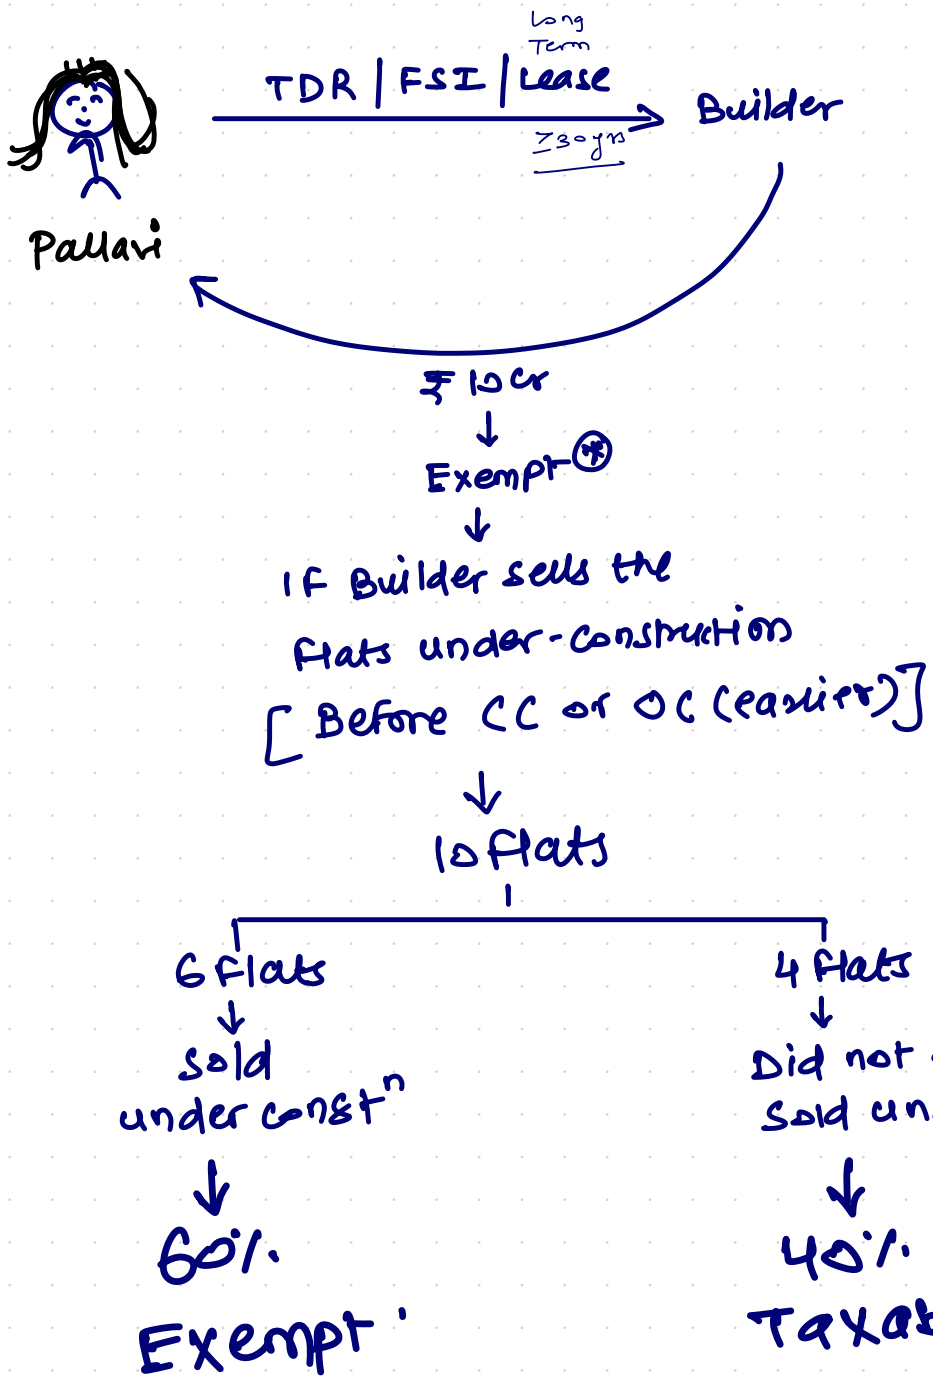 Long
Term
TDR | FSI | Lease
≥30yrs
Builder
Pallavi
₹10cr
Exempt *
IF Builder sells the
flats under-construction
[Before CC or OC (earlier)]
10 flats
6 flats
4 flats
sold
under constⁿ
Did not
sold un
60%
40%
Exempt
Taxa